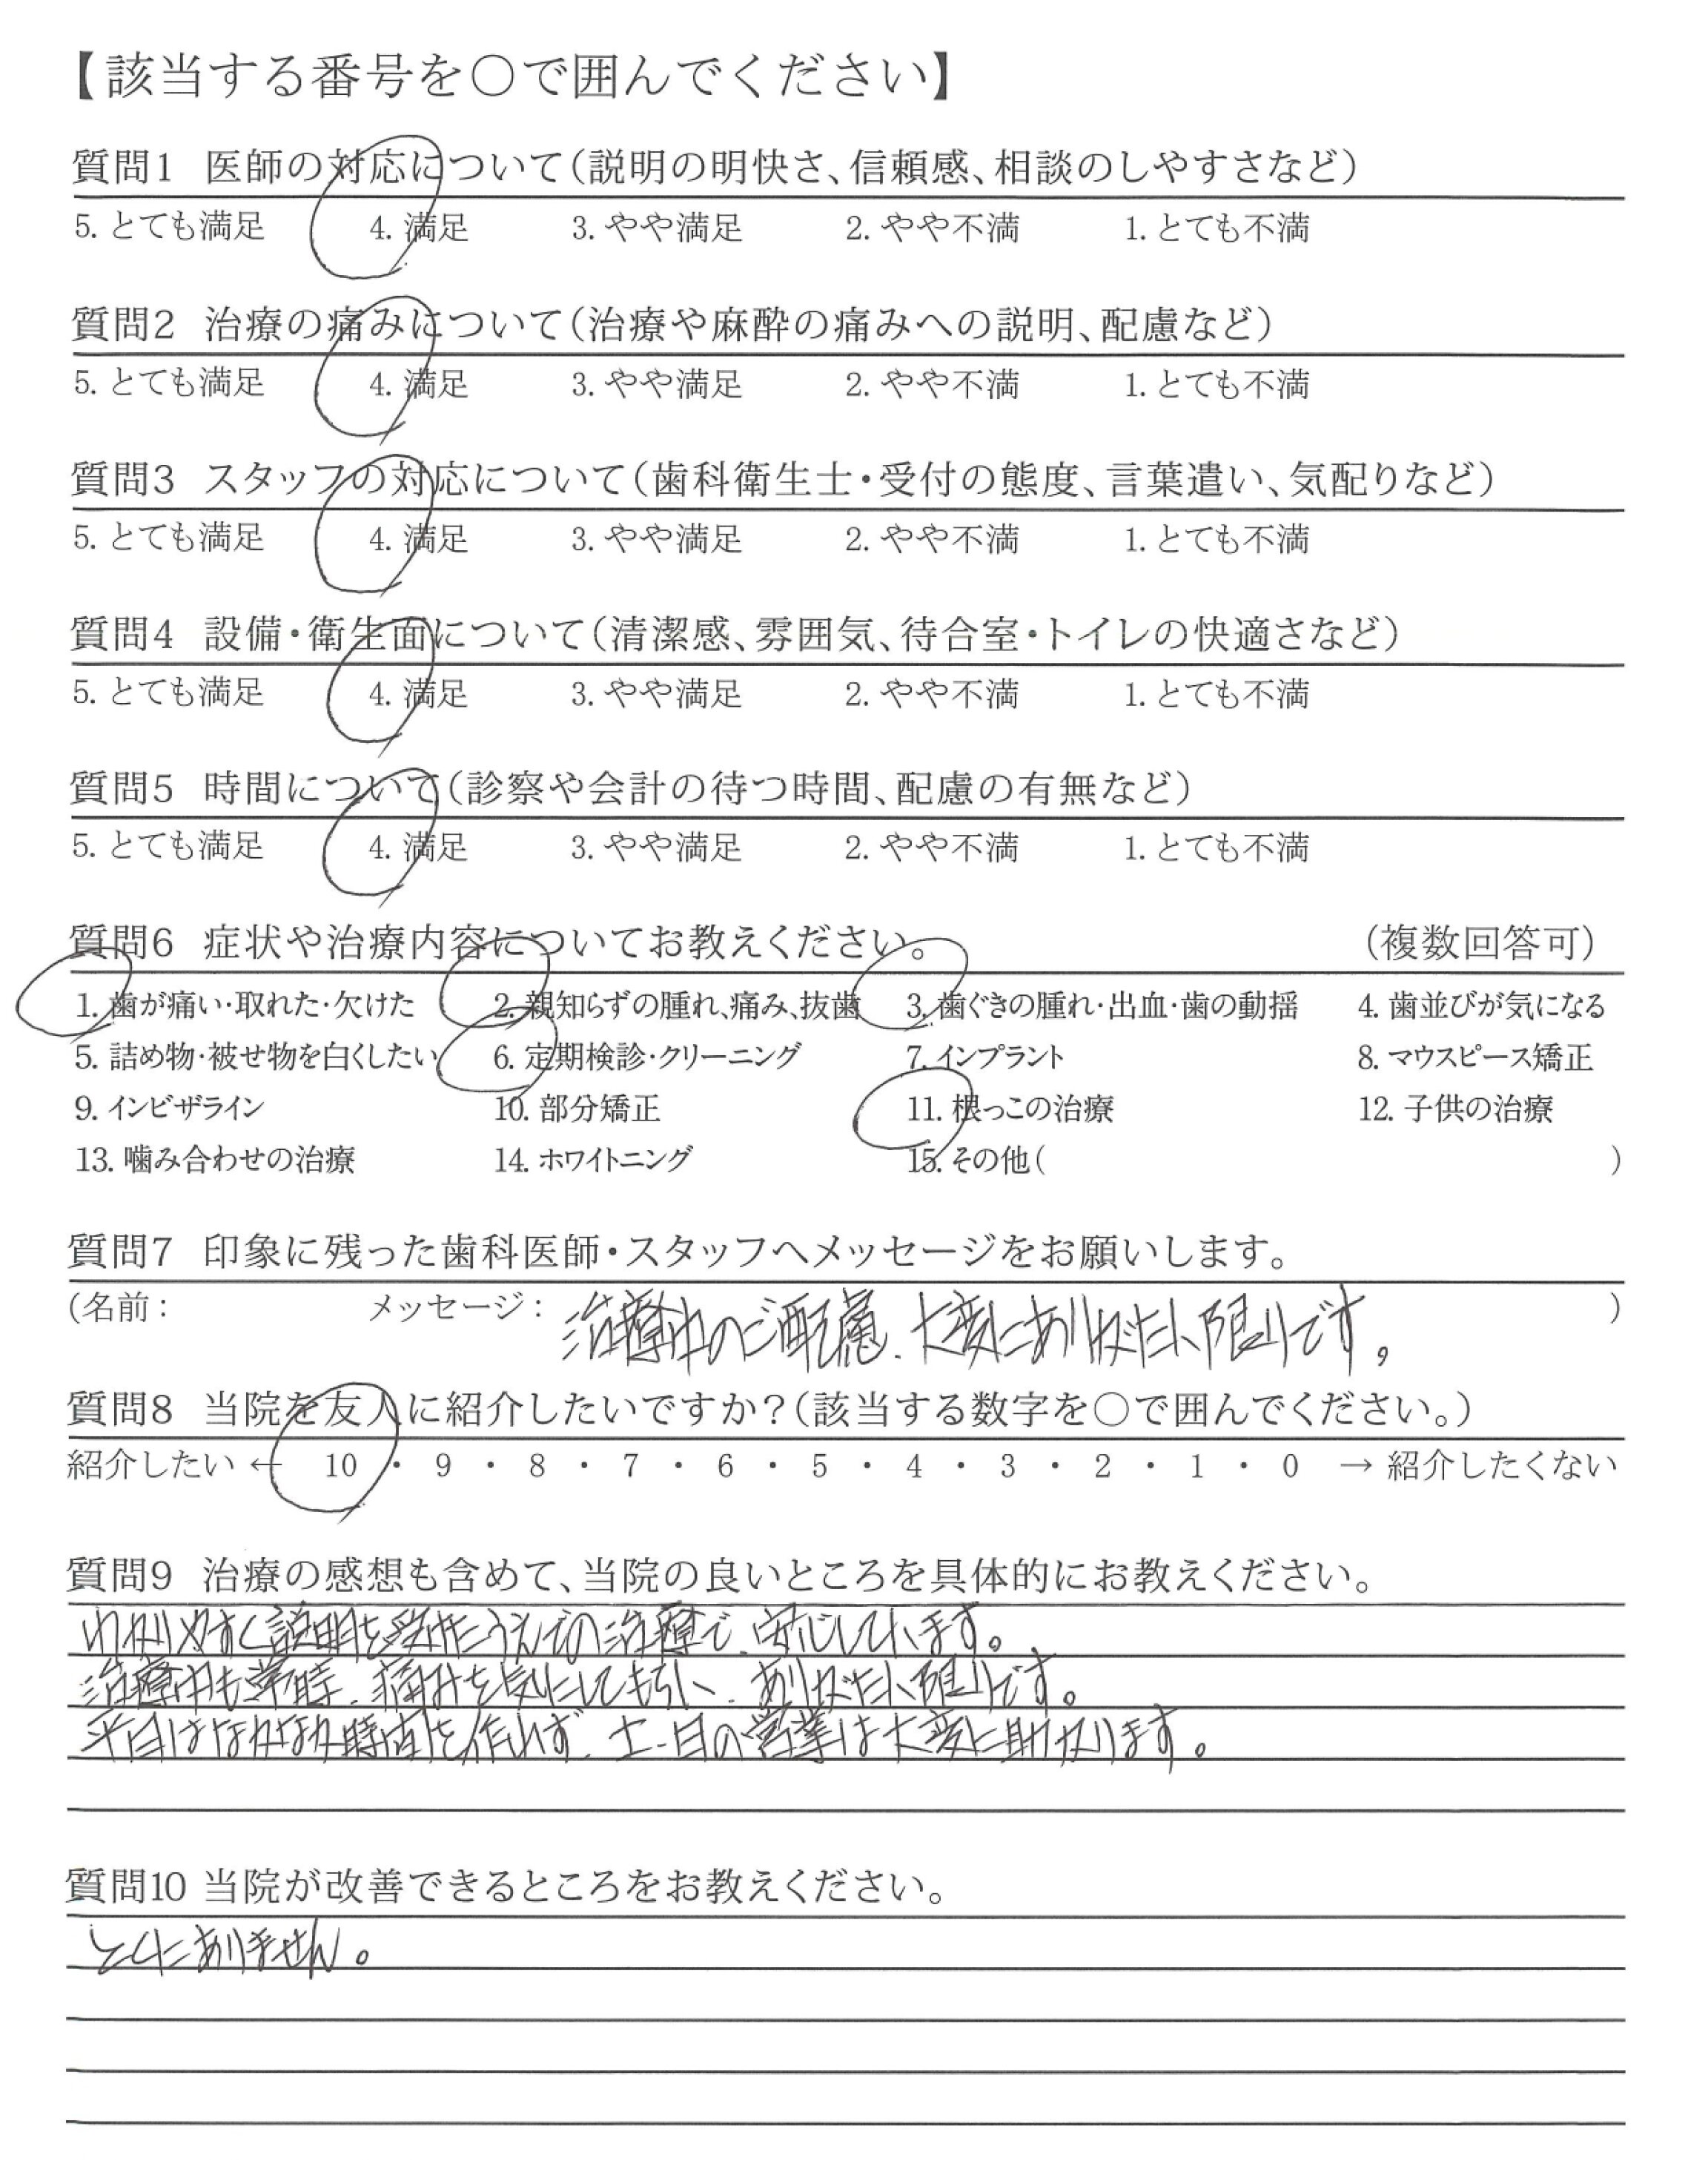 【該当する番号を○で囲んでください】
質問1 医師の対応について（説明の明快さ、信頼感、相談のしやすさなど）
5. とても満足 4. 満足 3. やや満足 2. やや不満 1. とても不満
質問2 治療の痛みについて（治療や麻酔の痛みへの説明、配慮など）
5. とても満足 4. 満足 3. やや満足 2. やや不満 1. とても不満
質問3 スタッフの対応について（歯科衛生士・受付の態度、言葉遣い、気配りなど）
5. とても満足 4. 満足 3. やや満足 2. やや不満 1. とても不満
質問4 設備・衛生面について（清潔感、雰囲気、待合室・トイレの快適さなど）
5. とても満足 4. 満足 3. やや満足 2. やや不満 1. とても不満
質問5 時間について（診察や会計の待つ時間、配慮の有無など）
5. とても満足 4. 満足 3. やや満足 2. やや不満 1. とても不満
質問6 症状や治療内容についてお教えください。 （複数回答可）
1. 歯が痛い・取れた・欠けた 2. 親知らずの腫れ、痛み、抜歯 3. 歯ぐきの腫れ・出血・歯の動揺 4. 歯並びが気になる
5. 詰め物・被せ物を白くしたい 6. 定期検診・クリーニング 7. インプラント 8. マウスピース矯正
9. インビザライン 10. 部分矯正 11. 根っこの治療 12. 子供の治療
13. 噛み合わせの治療 14. ホワイトニング 15. その他（ ）
質問7 印象に残った歯科医師・スタッフへメッセージをお願いします。
（名前： メッセージ：治療中のご配慮、大変にありがたい限りです。）
質問8 当院を友人に紹介したいですか？（該当する数字を○で囲んでください。）
紹介したい ← 10 ・ 9 ・ 8 ・ 7 ・ 6 ・ 5 ・ 4 ・ 3 ・ 2 ・ 1 ・ 0 → 紹介したくない
質問9 治療の感想も含めて、当院の良いところを具体的にお教えください。
わかりやすく説明を受けたうえでの治療で、安心しています。
治療中も常時、痛みを気にしてもらい、ありがたい限りです。
平日はなかなか時間を作れず、土・日の営業は大変に助かります。
質問10 当院が改善できるところをお教えください。
とくにありません。